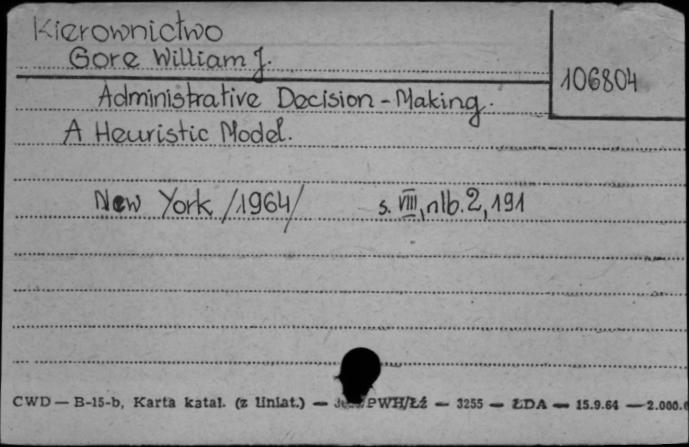 Kierownictwo
Gore William J.
106804
Administrative Decision-Making.
A Heuristic Model.
New York /1964/ s. VIII, nlb. 2, 191
CWD — B-15-b, Karta katal. (z liniat.) — PWH/Łź — 3255 — ŁDA — 15.9.64 — 2.000.